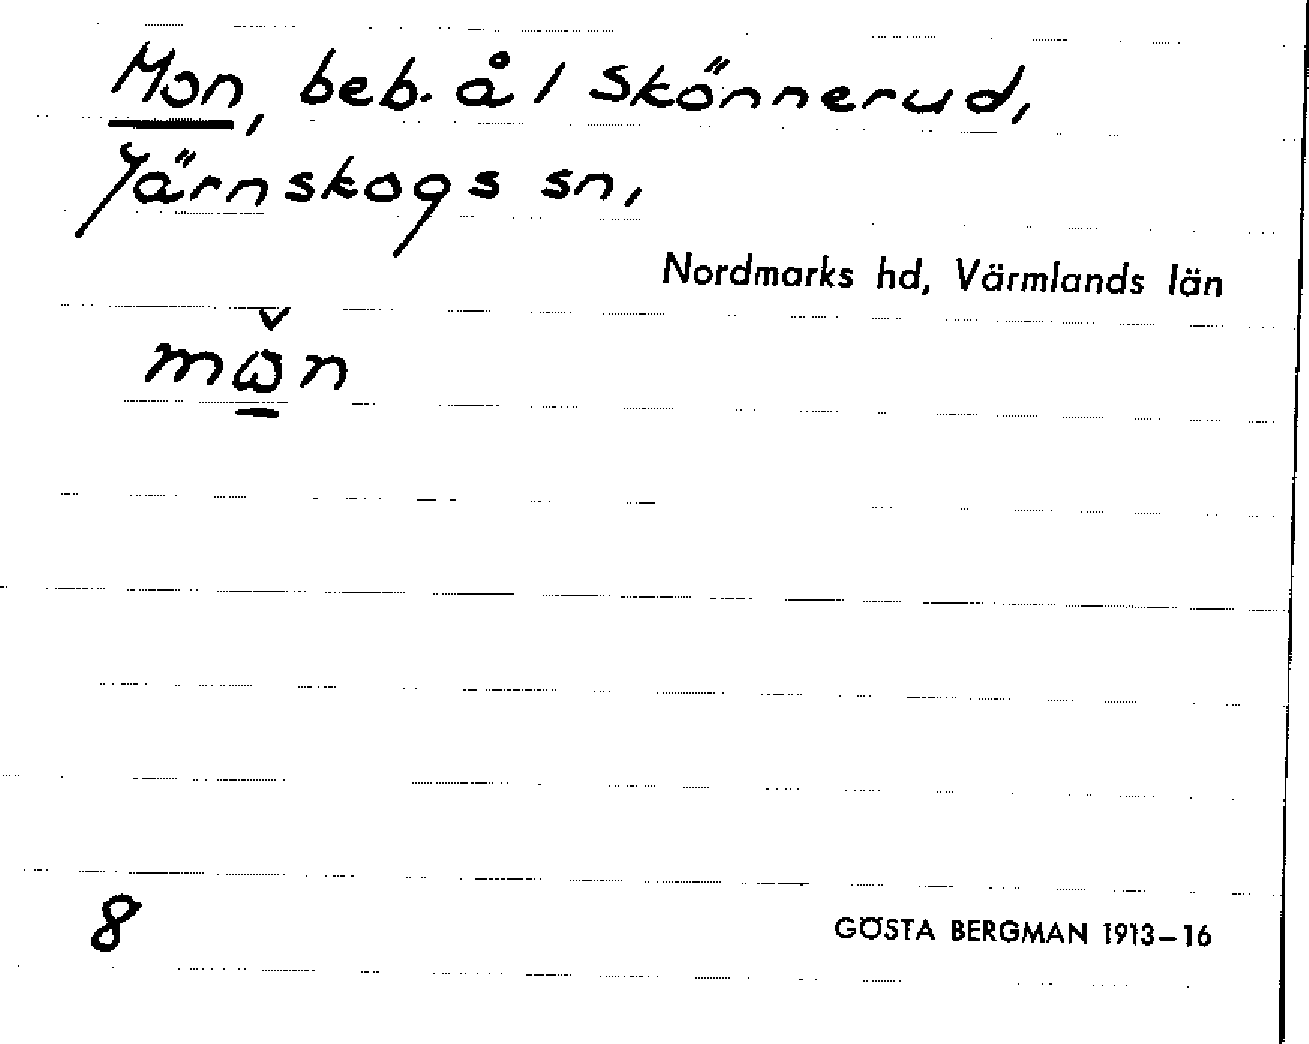 Mon, beb. å 1 Skönnerud,
Järnskogs sn,
Nordmarks hd, Värmlands län
mω̲̌n
8
GÖSTA BERGMAN 1913–16